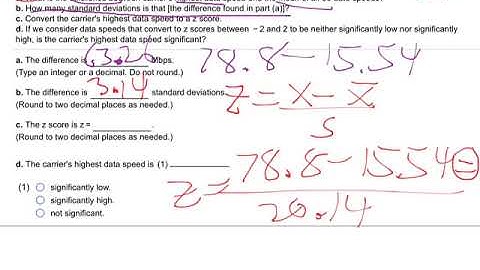 b. How many standard deviations is that [the difference found in part (a)]?
c. Convert the carrier's highest data speed to a z score.
d. If we consider data speeds that convert to z scores between −2 and 2 to be neither significantly low nor significantly
high, is the carrier's highest data speed significant?
a. The difference is 63.26 Mbps.
78.8-15.54
(Type an integer or a decimal. Do not round.)
b. The difference is 3.14 standard deviations
(Round to two decimal places as needed.)
z = x - x̄
s
c. The z score is z =
(Round to two decimal places as needed.)
d. The carrier's highest data speed is (1)
78.8-15.54=
z=
20.14
(1) significantly low.
significantly high.
not significant.